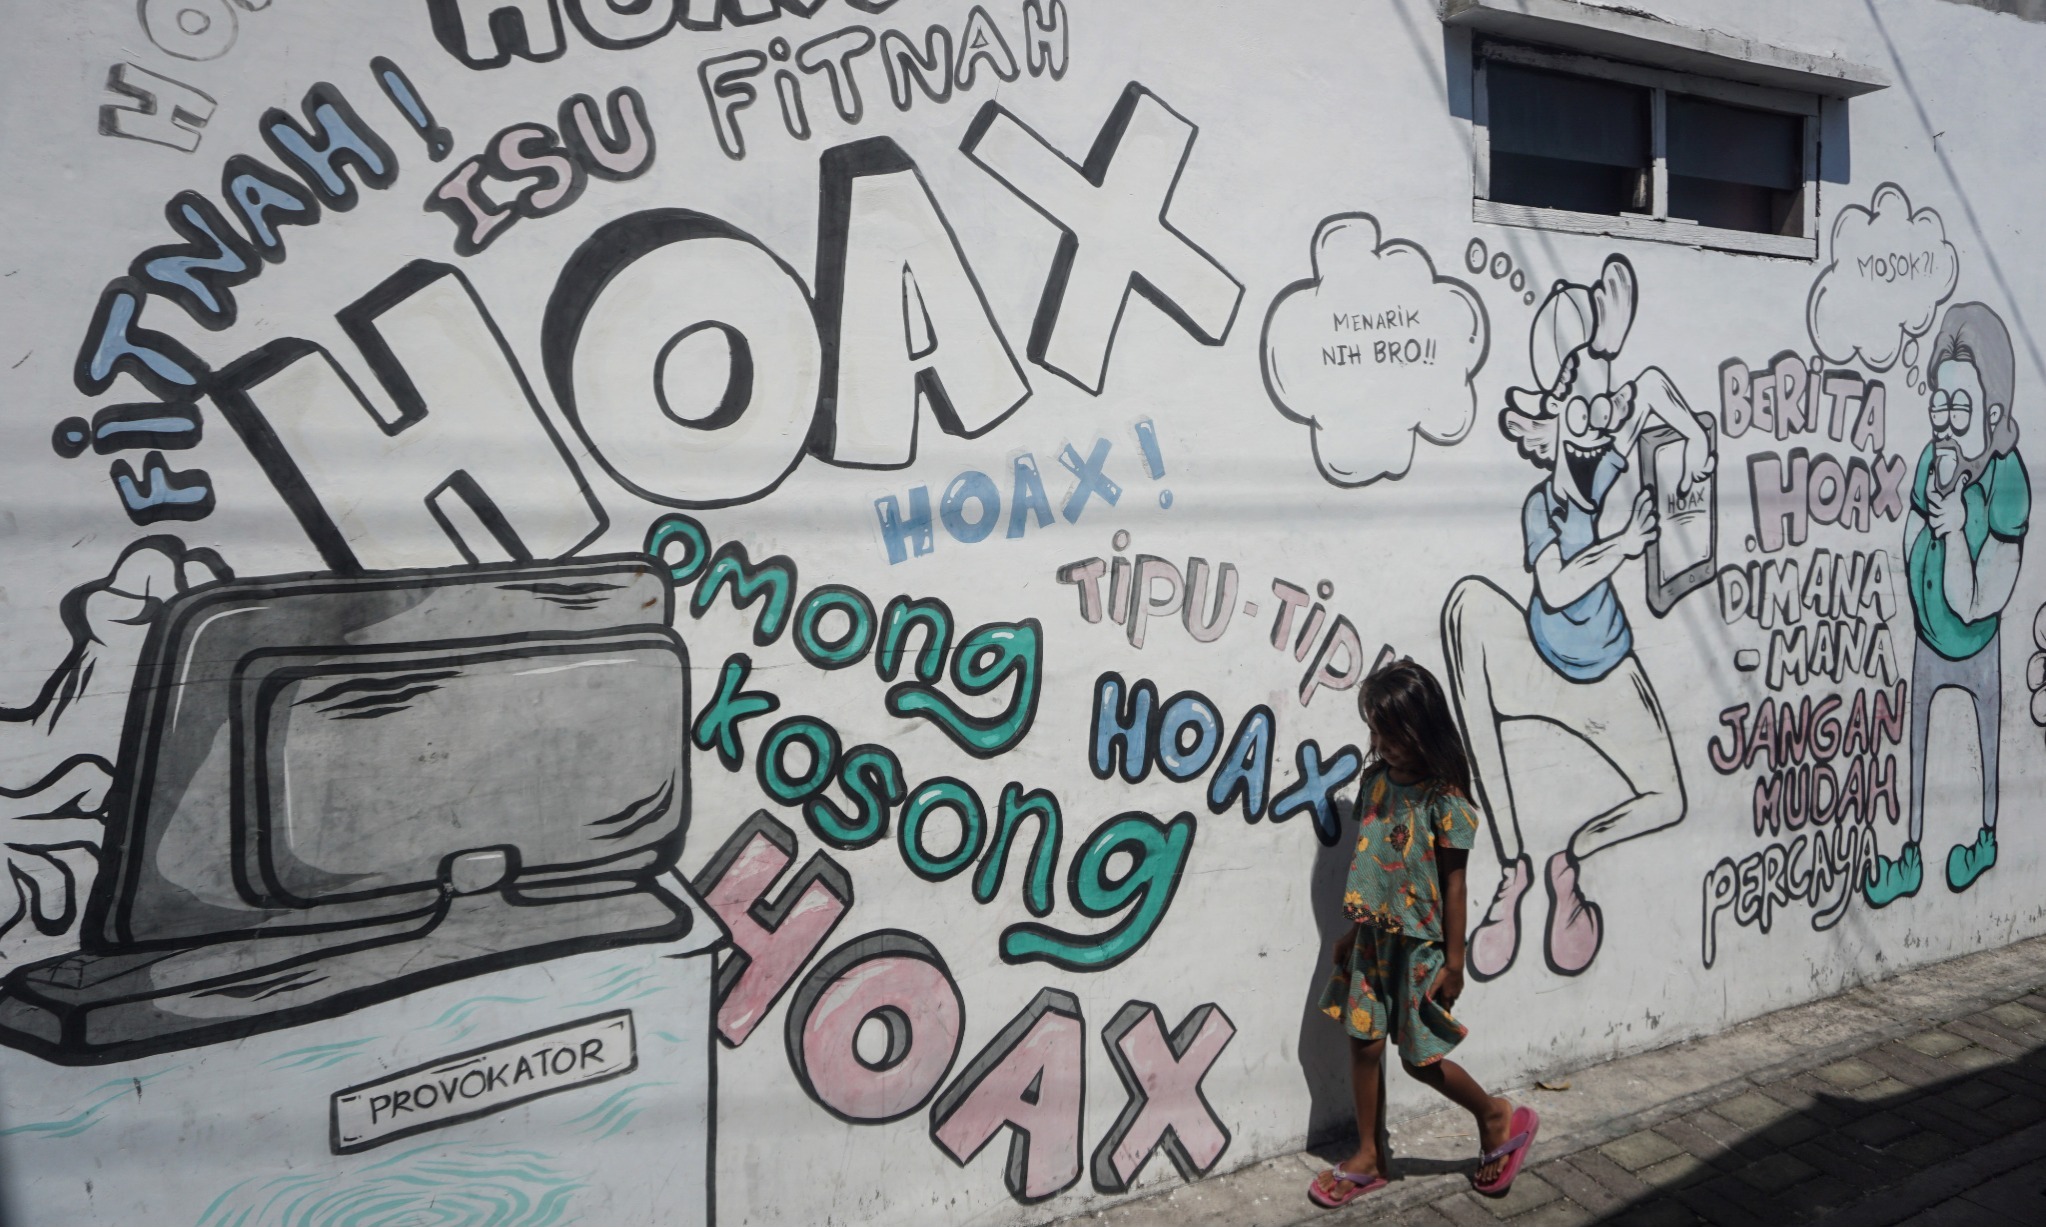 HOAX
ISU FiTNAH
FiTNAH!
HOAX
HOAX!
omong
kosong
TiPU-TiPU
HOAX
HOAX
PROVOKATOR
MENARIK
NIH BRO!!
HOAX
MOSOK?!
BERiTA
HOAX
DiMANA
-MANA
JANGAN
MUDAH
PERCAYA